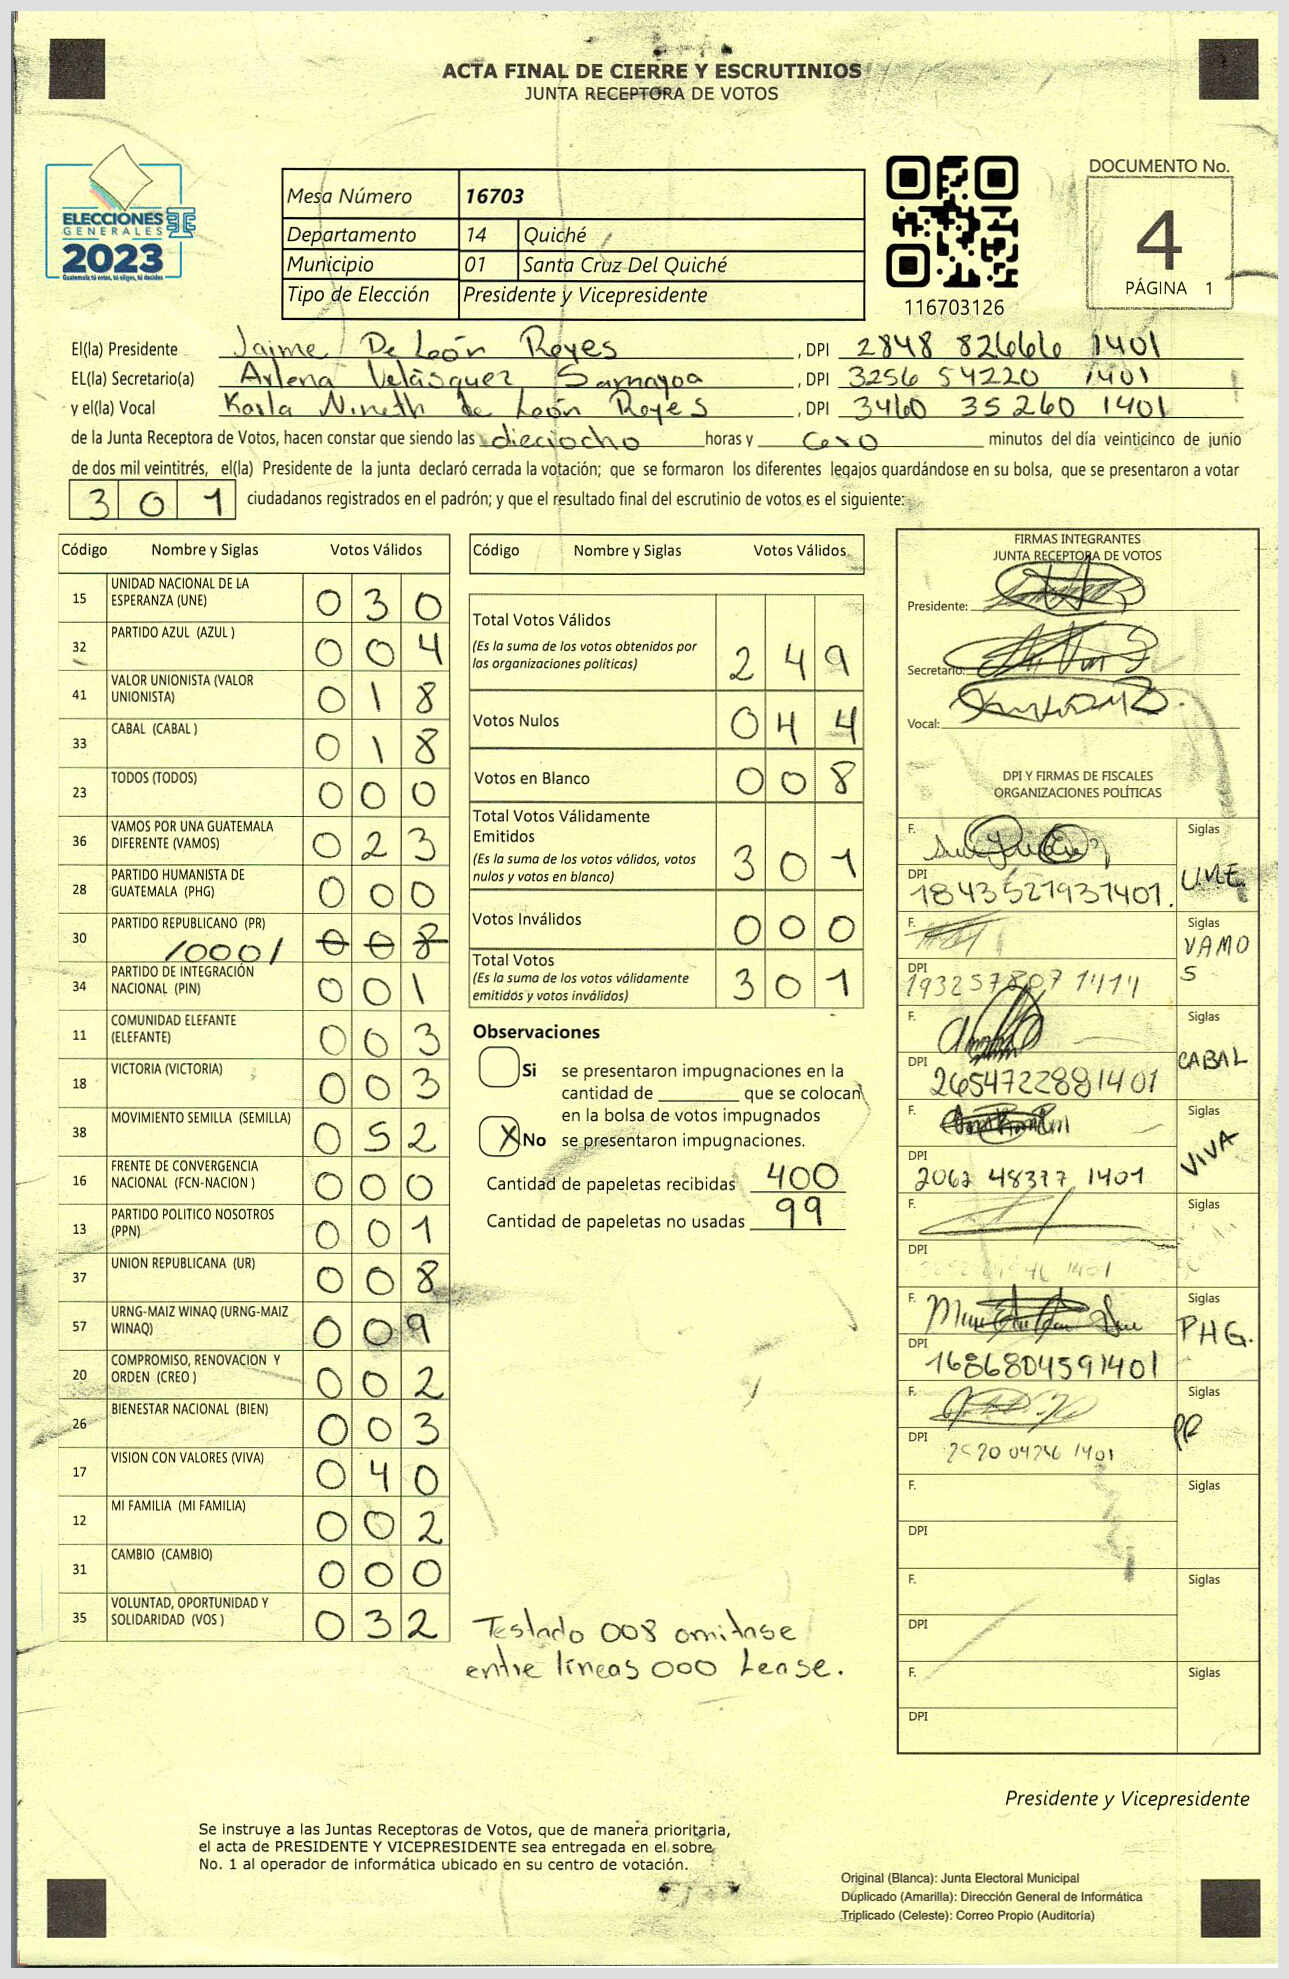 ACTA FINAL DE CIERRE Y ESCRUTINIOS
JUNTA RECEPTORA DE VOTOS
ELECCIONES
GENERALES
2023
Guatemala, tú votas, tú eliges, tú decides
Mesa Número 16703
Departamento 14 Quiché
Municipio 01 Santa Cruz Del Quiché
Tipo de Elección Presidente y Vicepresidente
116703126
DOCUMENTO No.
4
PÁGINA 1
El(la) Presidente Jaime De León Reyes, DPI 2848 82666 1401
EL(la) Secretario(a) Arlena Velásquez Samayoa, DPI 3256 54220 1401
y el(la) Vocal Karla Nineth de León Reyes, DPI 3460 35260 1401
de la Junta Receptora de Votos, hacen constar que siendo las dieciocho horas y cero minutos del día veinticinco de junio
de dos mil veintitrés, el(la) Presidente de la junta declaró cerrada la votación; que se formaron los diferentes legajos guardándose en su bolsa, que se presentaron a votar
301 ciudadanos registrados en el padrón; y que el resultado final del escrutinio de votos es el siguiente:
Código Nombre y Siglas Votos Válidos
15 UNIDAD NACIONAL DE LA ESPERANZA (UNE) 030
32 PARTIDO AZUL (AZUL ) 004
41 VALOR UNIONISTA (VALOR UNIONISTA) 018
33 CABAL (CABAL ) 018
23 TODOS (TODOS) 000
36 VAMOS POR UNA GUATEMALA DIFERENTE (VAMOS) 023
28 PARTIDO HUMANISTA DE GUATEMALA (PHG) 000
30 PARTIDO REPUBLICANO (PR) /000/ 008
34 PARTIDO DE INTEGRACIÓN NACIONAL (PIN) 001
11 COMUNIDAD ELEFANTE (ELEFANTE) 003
18 VICTORIA (VICTORIA) 003
38 MOVIMIENTO SEMILLA (SEMILLA) 052
16 FRENTE DE CONVERGENCIA NACIONAL (FCN-NACION ) 000
13 PARTIDO POLITICO NOSOTROS (PPN) 001
37 UNION REPUBLICANA (UR) 008
57 URNG-MAIZ WINAQ (URNG-MAIZ WINAQ) 009
20 COMPROMISO, RENOVACION Y ORDEN (CREO ) 002
26 BIENESTAR NACIONAL (BIEN) 003
17 VISION CON VALORES (VIVA) 040
12 MI FAMILIA (MI FAMILIA) 002
31 CAMBIO (CAMBIO) 000
35 VOLUNTAD, OPORTUNIDAD Y SOLIDARIDAD (VOS ) 032
Código Nombre y Siglas Votos Válidos
Total Votos Válidos
(Es la suma de los votos obtenidos por
las organizaciones políticas) 249
Votos Nulos 044
Votos en Blanco 008
Total Votos Válidamente
Emitidos
(Es la suma de los votos válidos, votos
nulos y votos en blanco) 301
Votos Inválidos 000
Total Votos
(Es la suma de los votos válidamente
emitidos y votos inválidos) 301
Observaciones
Si se presentaron impugnaciones en la
cantidad de ________ que se colocan
en la bolsa de votos impugnados
X No se presentaron impugnaciones.
Cantidad de papeletas recibidas 400
Cantidad de papeletas no usadas 99
Testado 008 omitase
entre líneas 000 Lease.
FIRMAS INTEGRANTES
JUNTA RECEPTORA DE VOTOS
Presidente:
Secretario:
Vocal:
DPI Y FIRMAS DE FISCALES
ORGANIZACIONES POLÍTICAS
F. Siglas
DPI 1843527937401. U.N.E.
F. Siglas
DPI VAMOS
F. Siglas
DPI 2654722881401 CABAL
F. Siglas
DPI 2067 48377 1401 VIVA
F. Siglas
DPI 1401
F. Siglas
DPI 1686804591401 PHG.
F. Siglas
DPI 1401 PR
F. Siglas
DPI
F. Siglas
DPI
F. Siglas
DPI
Presidente y Vicepresidente
Se instruye a las Juntas Receptoras de Votos, que de manera prioritaria,
el acta de PRESIDENTE Y VICEPRESIDENTE sea entregada en el sobre
No. 1 al operador de informática ubicado en su centro de votación.
Original (Blanca): Junta Electoral Municipal
Duplicado (Amarilla): Dirección General de Informática
Triplicado (Celeste): Correo Propio (Auditoría)